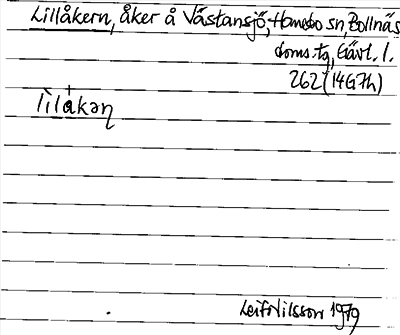 Lillåkern, åker å Västansjö, Hanebo sn, Bollnäs
doms. tg, Gävl. l.
262 (14G7h)
lìlåkəɳ
Leif Nilsson 1979